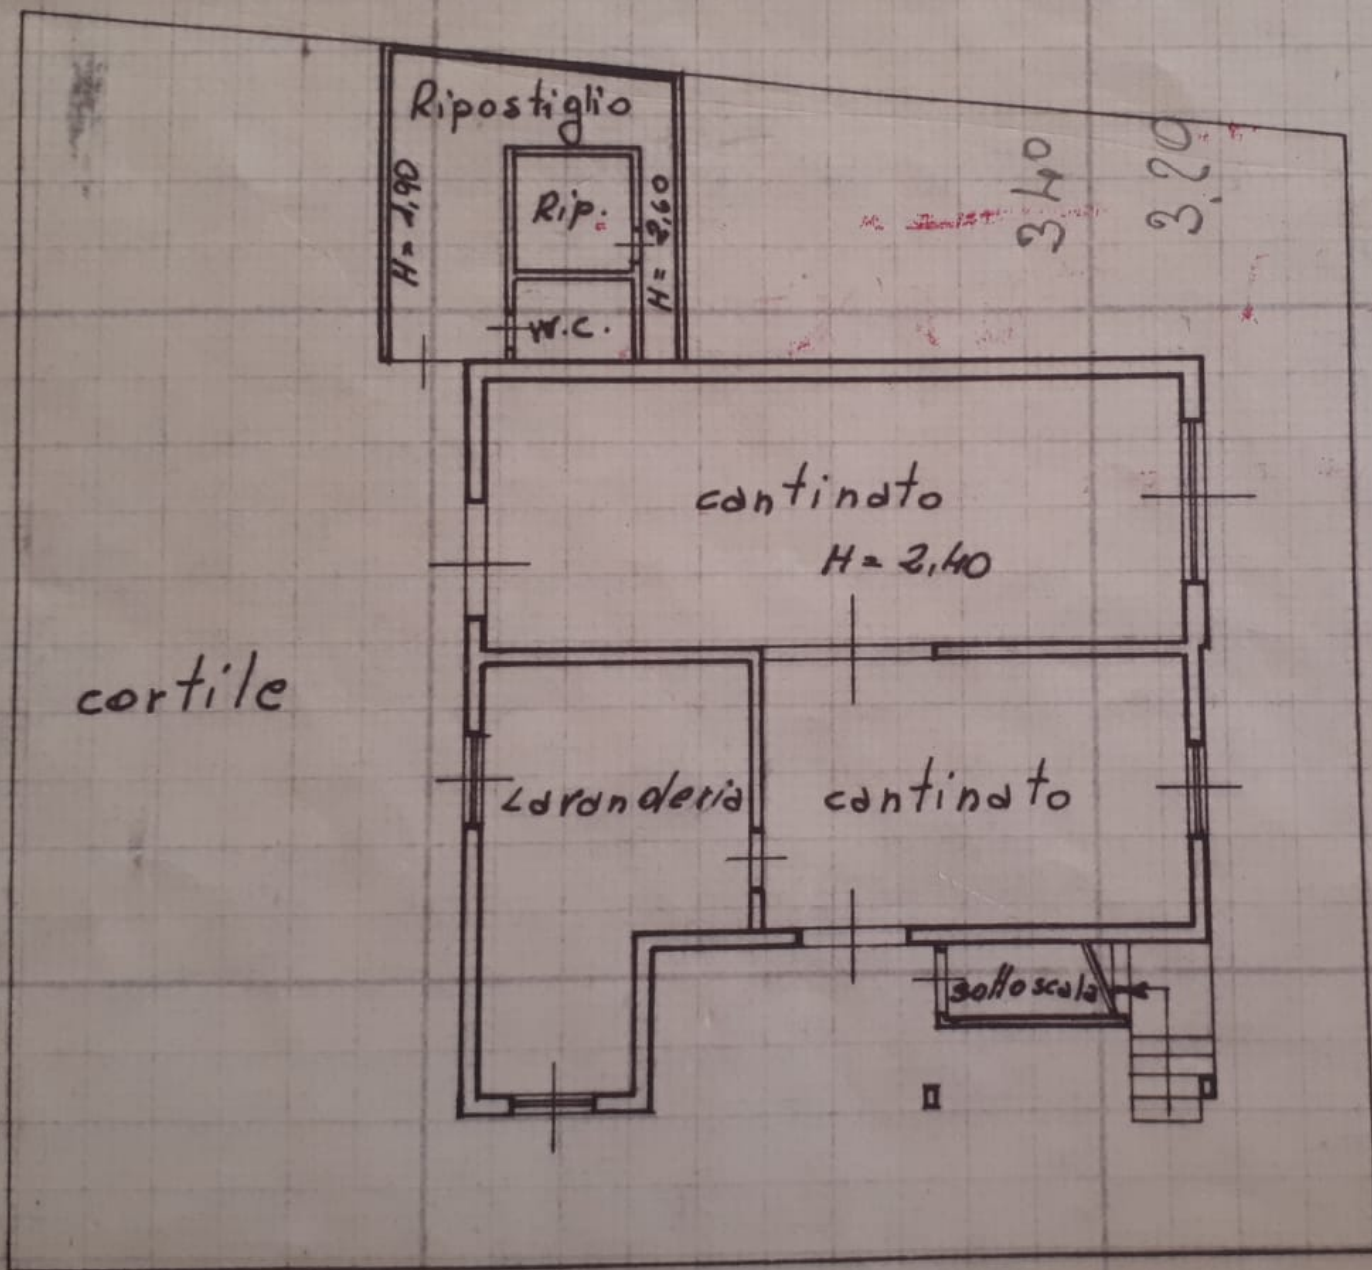 Ripostiglio
H = 1,90
Rip.
H = 2,60
W.C.
3.40
3.20
cantinato
H = 2,40
cortile
Lavanderia
cantinato
sottoscala